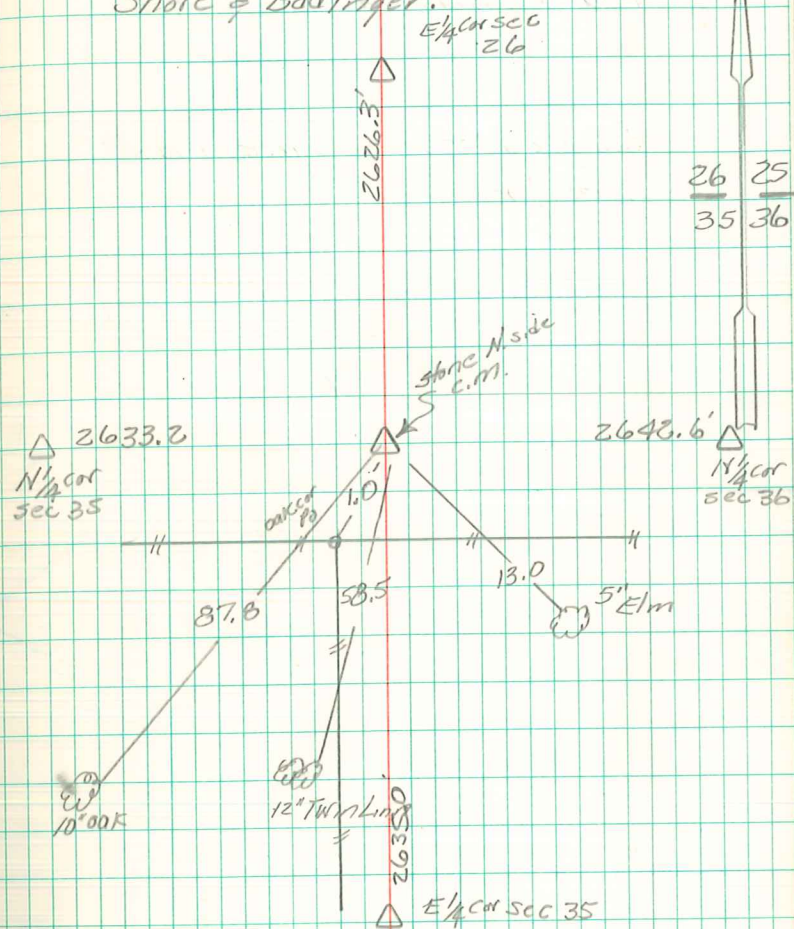 Shore &
E 1/4 cor sec
26
2626.3'
26 25
35 36
stone N. side
c.m.
2633.2
N 1/4 cor
sec 35
2642.6'
N 1/4 cor
sec 36
1.0'
oak cor
po
87.8
58.5
13.0
5" Elm
10" oak
12" Twin Lin
2635.0
E 1/4 cor sec 35